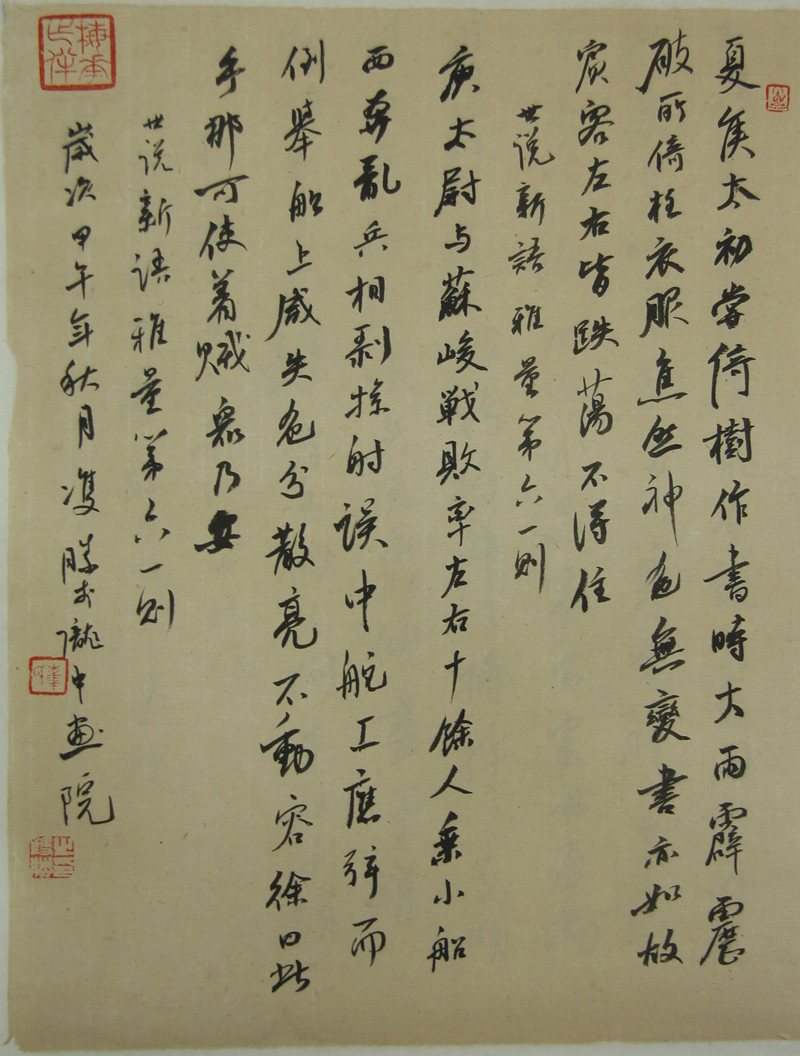 夏侯太初嘗倚樹作書時大雨霹靂
破所倚柱衣服焦然神色無變書亦如故
賓客左右皆跌蕩不得住
世说新語雅量第六一则
庾太尉与蘇峻戰敗率左右十餘人乘小船
西奔亂兵相剥掠射误中舵工應弦而
倒舉船上咸失色分散亮不動容徐曰此
手那可使着贼衆乃安
世说新語雅量第六一则
歲次甲午年秋月 勝於 中画院